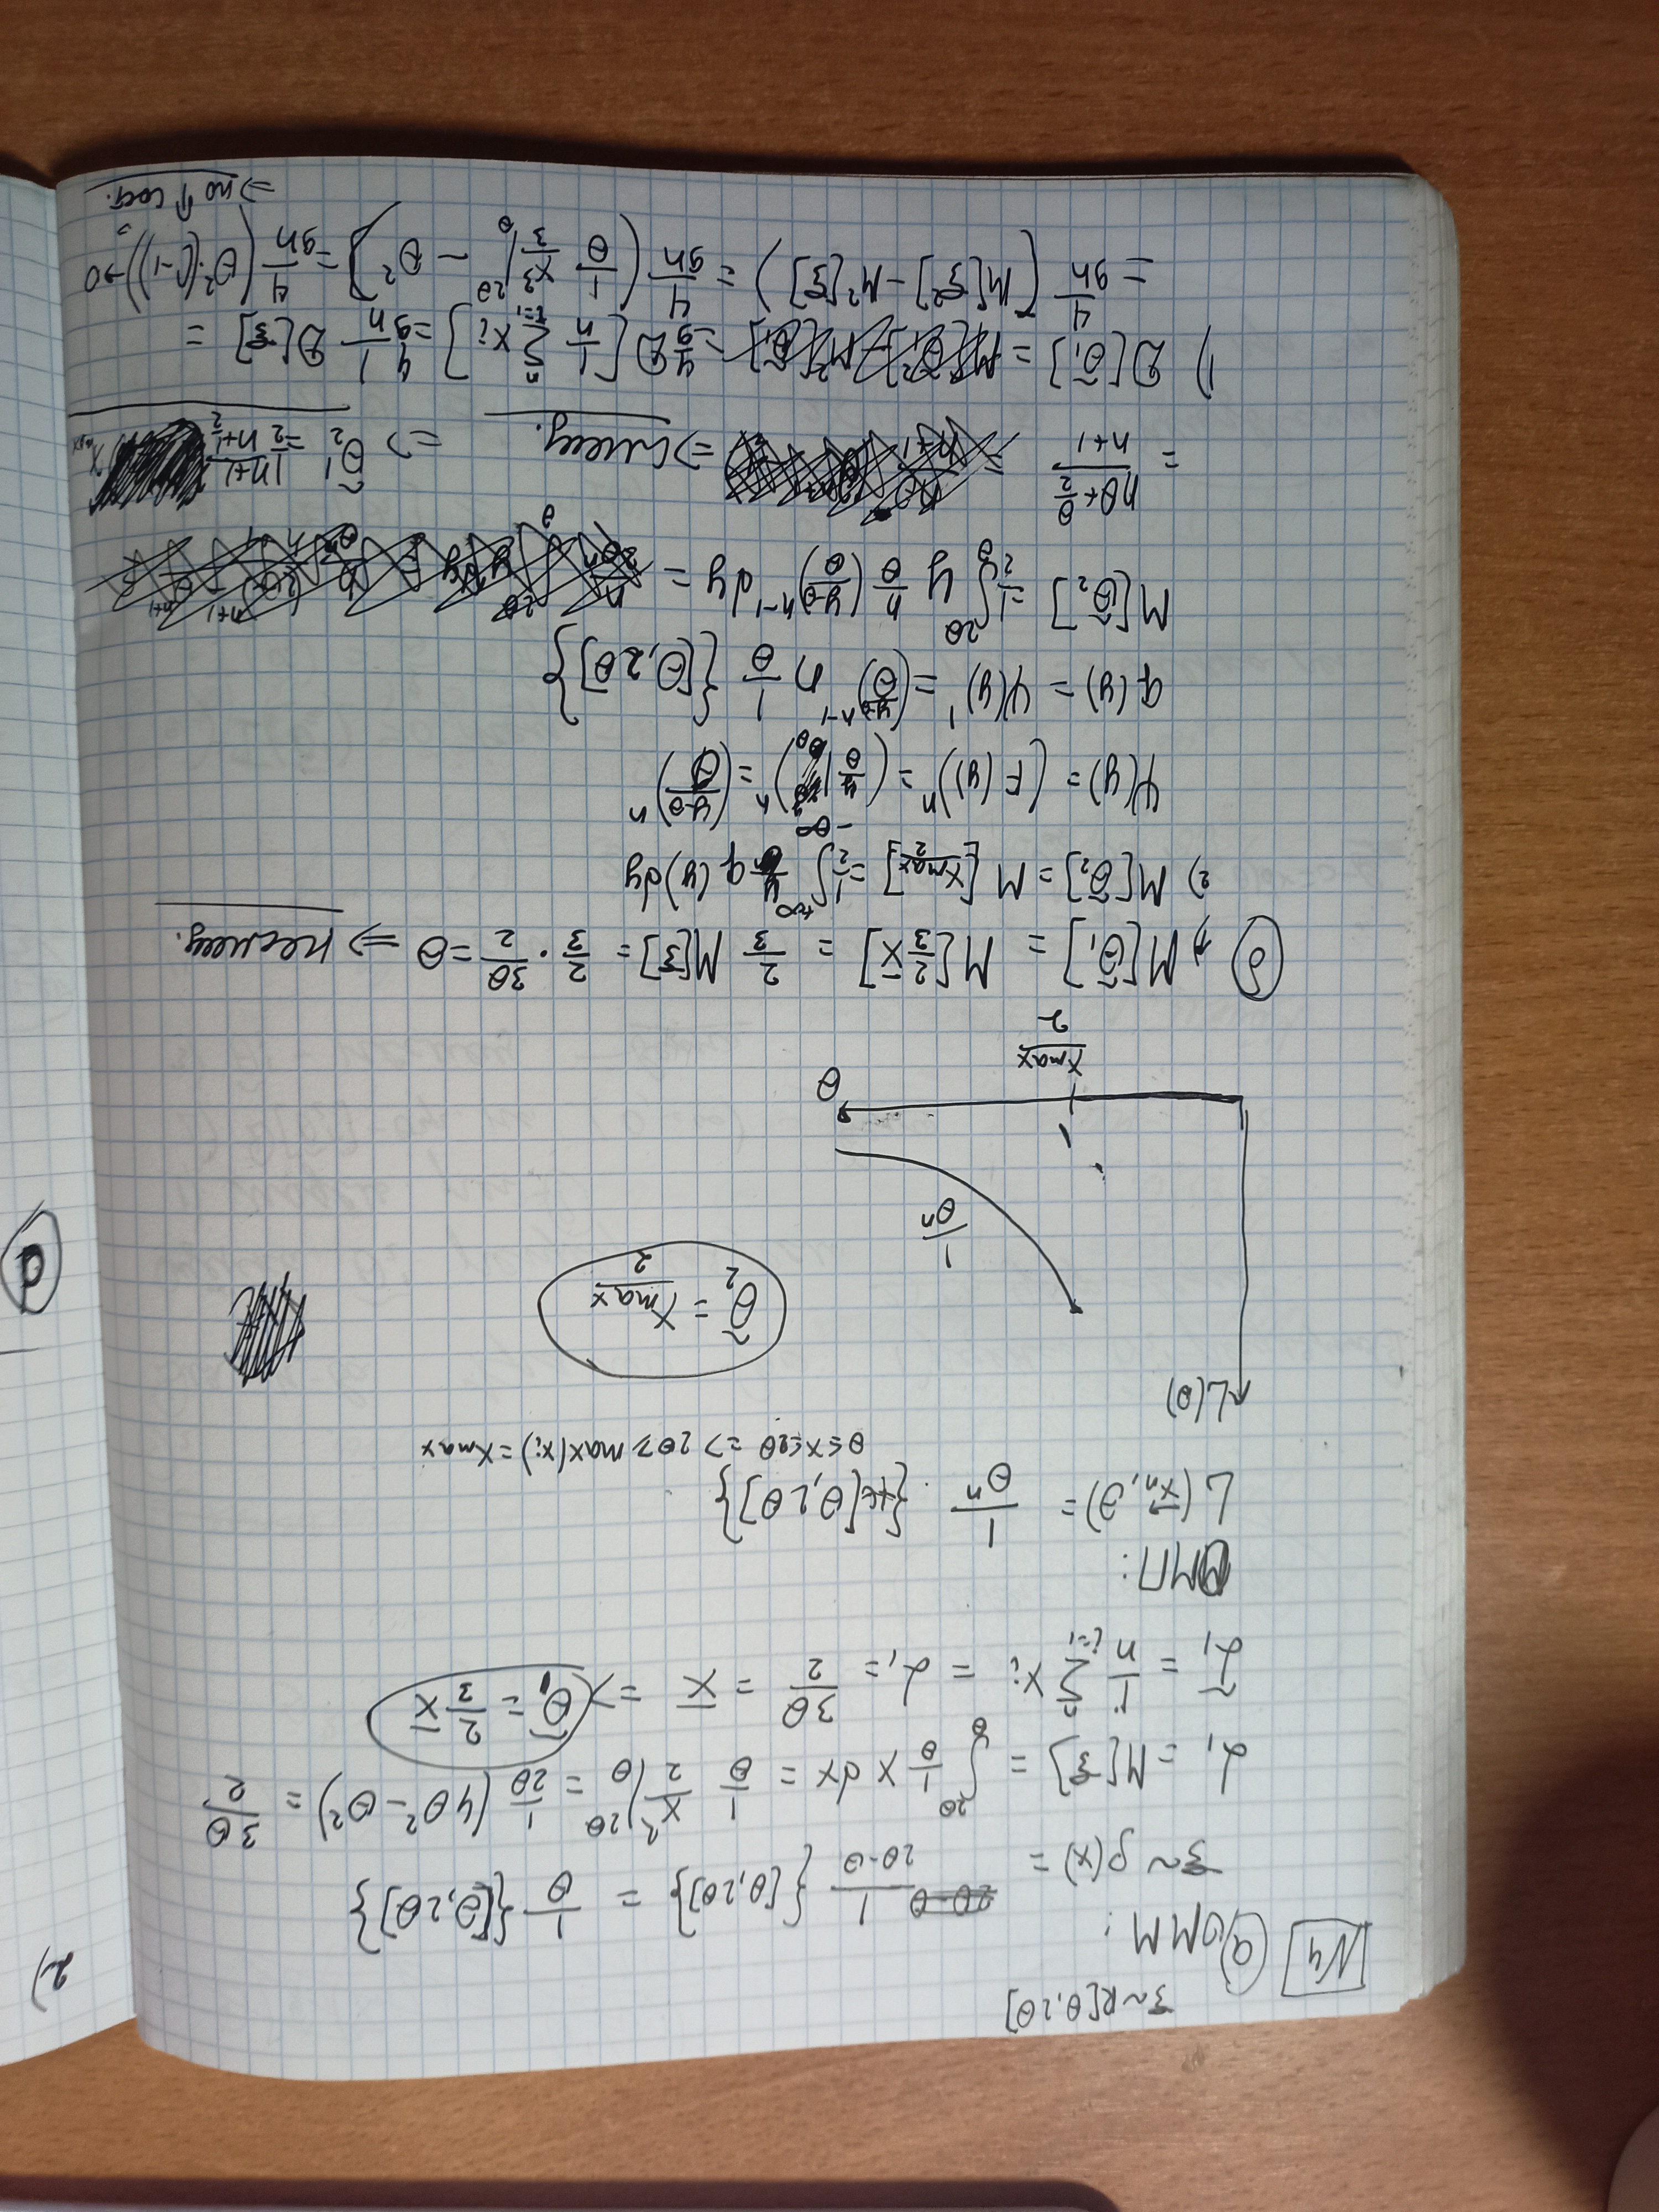 ξ ~ R[θ, 2θ]
N4 а) ОММ:
ξ ~ ρ(x) = 1/(2θ-θ) {[θ, 2θ]} = 1/θ {[θ, 2θ]}
α₁ = M[ξ] = ∫_θ^{2θ} 1/θ x dx = 1/θ x²/2 |_θ^{2θ} = 1/(2θ) (4θ² - θ²) = 3θ/2
α̃₁ = 1/n Σ_{i=1}^n xᵢ = α₁ = 3θ/2 = x̄ => θ̃₁ = 2/3 x̄
ОМП:
L(x⃗ₙ, θ) = 1/θⁿ · {x∈[θ, 2θ]}
θ ≤ x ≤ 2θ => 2θ ≥ max(xᵢ) = x_max
L(θ)
θ̃₂ = x_max/2
1/θⁿ
θ
x_max/2
б) 1) M[θ̃₁] = M[2/3 x̄] = 2/3 M[ξ] = 2/3 · 3θ/2 = θ => несмещ.
2) M[θ̃₂] = M[x_max/2] = 1/2 ∫_{-∞}^{+∞} y q(y)dy
Ψ(y) = (F(y))ⁿ = (y/θ |_θ)ⁿ = ((y-θ)/θ)ⁿ
q(y) = Ψ(y)' = ((y-θ)/θ)^{n-1} n 1/θ {[θ, 2θ]}
M[θ̃₂] = 1/2 ∫_θ^{2θ} y n/θ ((y-θ)/θ)^{n-1} dy =
= (nθ + θ/2)/(n+1) => смещ. => θ̃₂' = 1/2 (n+1)/(n+1/2) x_max
1) D[θ̃₁] = 4/9 D[1/n Σ_{i=1}^n xᵢ] = 4/9 1/n D[ξ] =
= 4/(9n) (M[ξ²] - M²[ξ]) = 4/(9n) (1/θ x³/3 |_θ^{2θ} - θ²) = 4/(9n) (θ²·(-1)) → 0
=> по ↑ сост.
2)
d